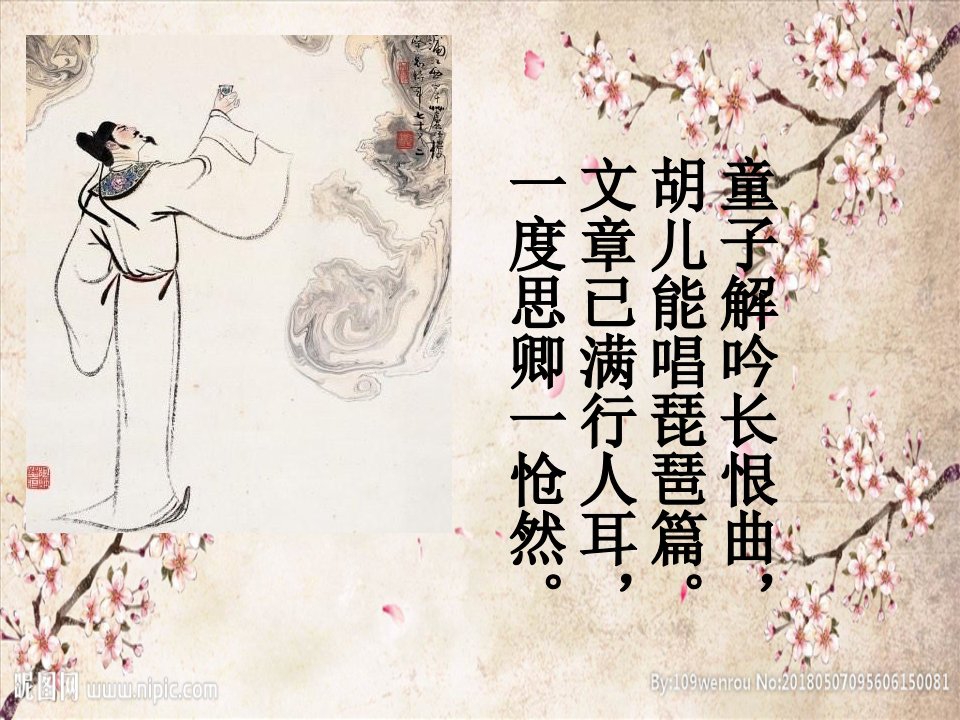 童子解吟长恨曲，
胡儿能唱琵琶篇。
文章已满行人耳，
一度思卿一怆然。
昵图网 www.nipic.com
By:109wenrou No:20180507095606150081